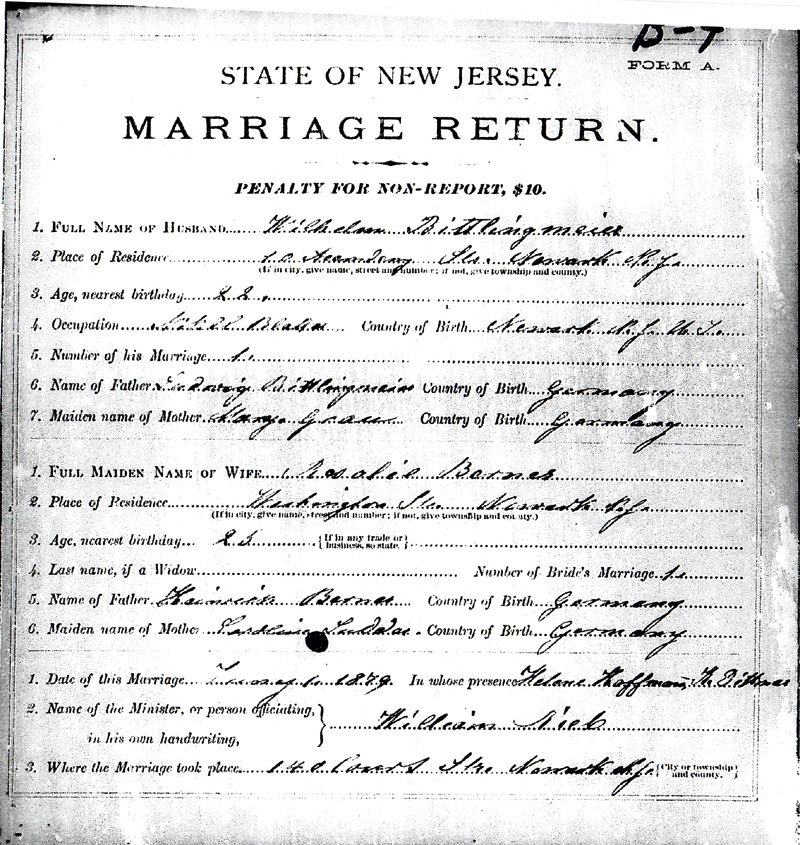 B-7
FORM A.
STATE OF NEW JERSEY.
MARRIAGE RETURN.
PENALTY FOR NON-REPORT, $10.
1. FULL NAME OF HUSBAND Wilhelm Bittlingmeier
2. Place of Residence Academy Str. Newark N.J.
(If in city, give name, street and number; if not, give township and county.)
3. Age, nearest birthday 22.
4. Occupation Country of Birth Newark N.J.
5. Number of his Marriage 1.
6. Name of Father Ludwig Bittlingmeier Country of Birth Germany
7. Maiden name of Mother Mary Grau Country of Birth Germany
1. FULL MAIDEN NAME OF WIFE Rosalie Berner
2. Place of Residence Washington Str. Newark N.J.
(If in city, give name, street and number; if not, give township and county.)
3. Age, nearest birthday 23 {If in any trade or business, so state.}
4. Last name, if a Widow Number of Bride's Marriage 1.
5. Name of Father Heinrich Berner Country of Birth Germany
6. Maiden name of Mother Country of Birth Germany
1. Date of this Marriage 1. 1879. In whose presence Helene Hoffman,
2. Name of the Minister, or person officiating, in his own handwriting, William
3. Where the Marriage took place 140 Court Str. Newark N.J. {City or township and county.}